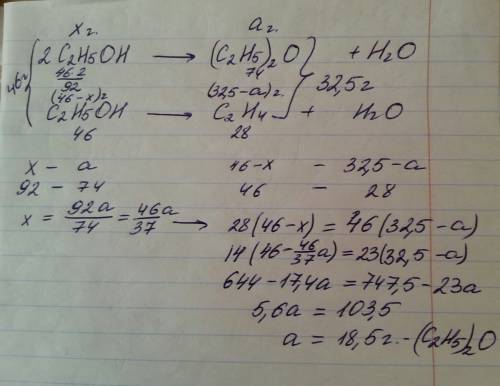 x г. a г.
46г { 2 C₂H₅OH ⟶ (C₂H₅)₂O } + H₂O
46·2 74
92 32,5г
(46-x)г (32,5-a)г.
C₂H₅OH ⟶ C₂H₄ + H₂O
46 28
x - a 46-x - 32,5-a
92 - 74 46 - 28
x = 92a/74 = 46a/37 ⟶ 28(46-x) = 46(32,5-a)
14(46-46/37 a) = 23(32,5-a)
644-17,4a = 747,5-23a
5,6a = 103,5
a = 18,5г. - (C₂H₅)₂O